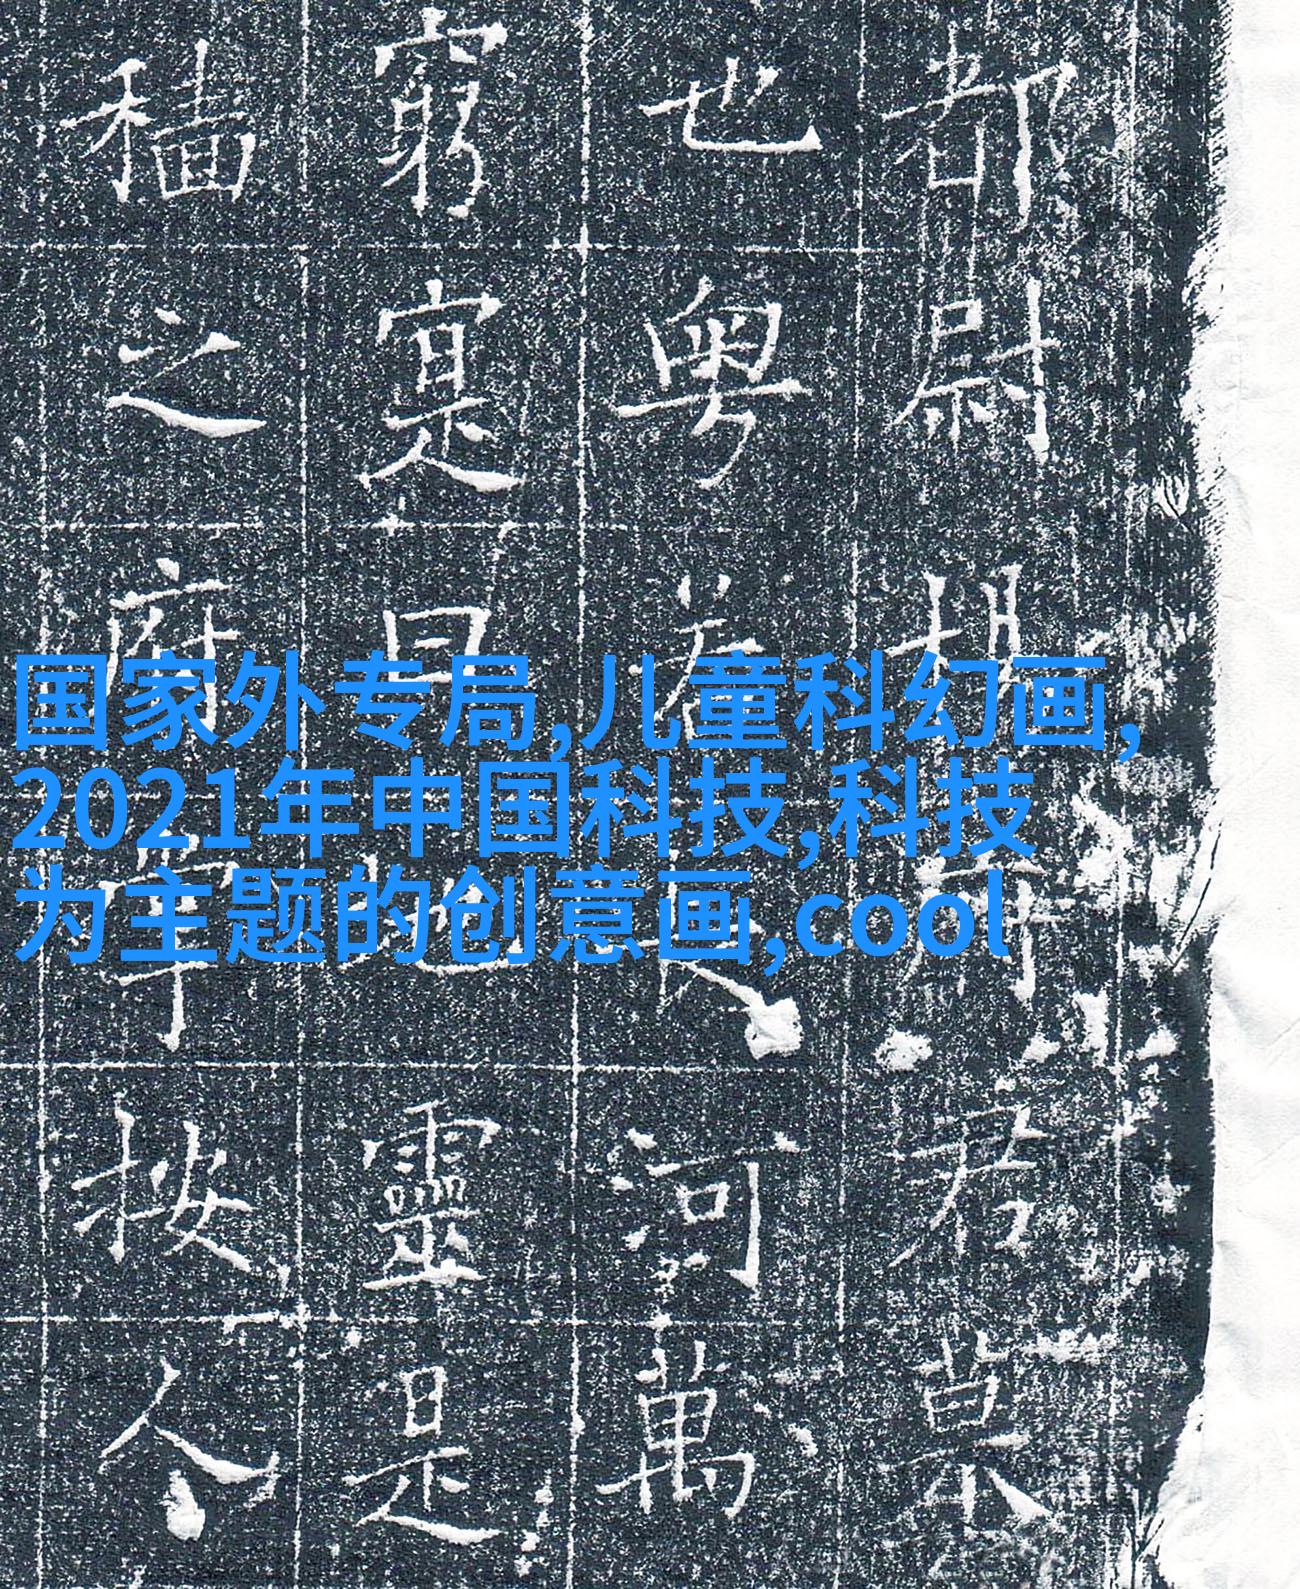 都尉府君
也粤若長河萬
窮寔曰地靈是
穡之府按人
国家外专局,儿童科幻画,
2021年中国科技,科技
为主题的创意画,cool